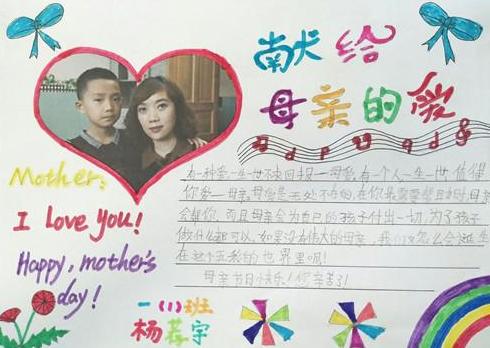 献给
母亲的爱
Mother:
I love you!
Happy, mother's
day!
有种爱一生一世不求回报—母爱,有个人一生一世值得
你爱—母亲,母爱是无处不在的,在你最需要帮助时母亲
会帮你,而且母亲会为自己的孩子付出一切,为了孩子
做什么都可以,如果没有伟大的母亲,我们又怎么会诞生
在这个五彩的世界里呢!
母亲节日快乐!您辛苦了!
一(1)班
杨荐宇